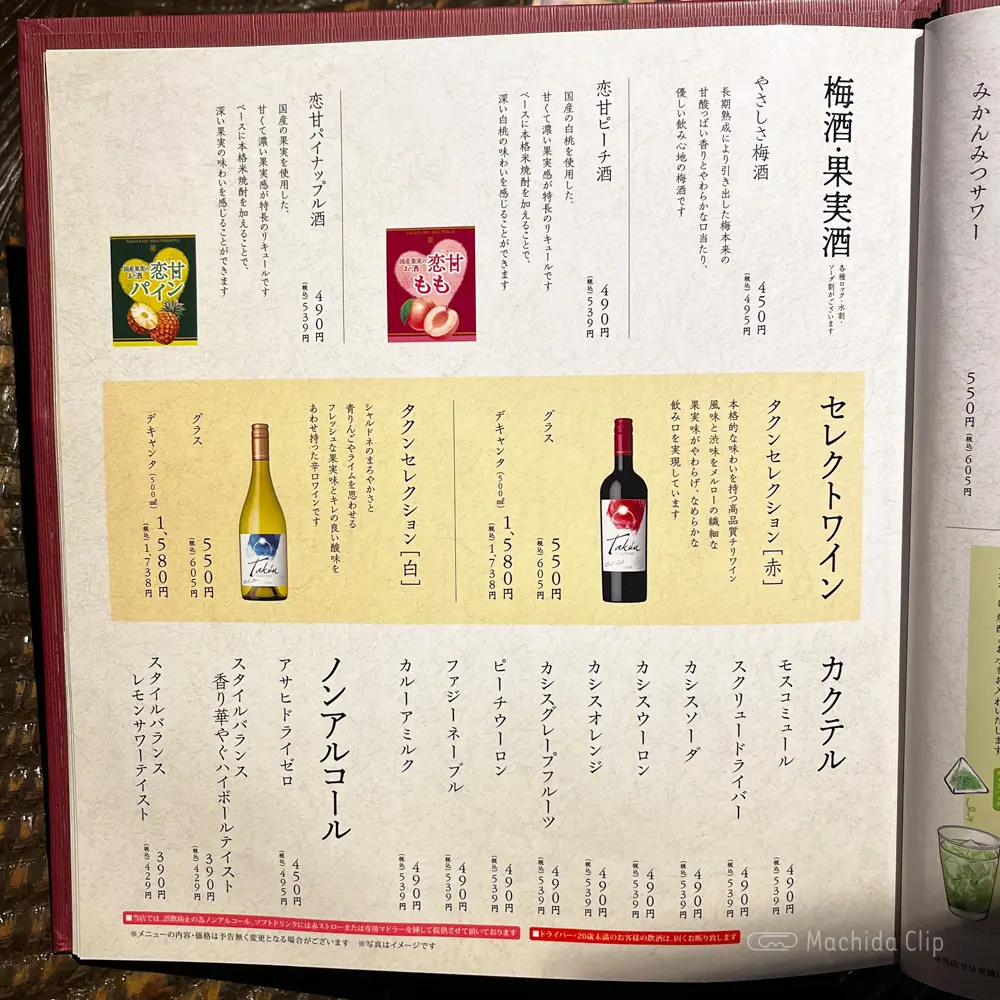 みかんみつサワー
550円
(税込)605円
梅酒・果実酒
各種ロック・水割・
ソーダ割がございます
やさしさ梅酒
長期熟成により引き出した梅本来の
甘酸っぱい香りとやわらかな口当たり、
優しい飲み心地の梅酒です
450円
(税込)495円
恋甘ピーチ酒
国産の白桃を使用した、
甘くて濃い果実感が特長のリキュールです
ベースに本格米焼酎を加えることで、
深い白桃の味わいを感じることができます
490円
(税込)539円
国産果実の
お酒
恋甘
もも
恋甘パイナップル酒
国産の果実を使用した、
甘くて濃い果実感が特長のリキュールです
ベースに本格米焼酎を加えることで、
深い果実の味わいを感じることができます
490円
(税込)539円
国産果実の
お酒
恋甘
パイン
セレクトワイン
タクンセレクション[赤]
本格的な味わいを持つ高品質チリワイン
風味と渋味をメルローの繊細な
果実味がやわらげ、なめらかな
飲み口を実現しています
Takün
グラス
550円
(税込)605円
デキャンタ(500㎖)
1,580円
(税込)1,738円
タクンセレクション[白]
シャルドネのまろやかさと
青りんごやライムを思わせる
フレッシュな果実味とキレの良い酸味を
あわせ持った辛口ワインです
Takün
グラス
550円
(税込)605円
デキャンタ(500㎖)
1,580円
(税込)1,738円
カクテル
モスコミュール
490円
(税込)539円
スクリュードライバー
490円
(税込)539円
カシスソーダ
490円
(税込)539円
カシスウーロン
490円
(税込)539円
カシスオレンジ
490円
(税込)539円
カシスグレープフルーツ
490円
(税込)539円
ピーチウーロン
490円
(税込)539円
ファジーネーブル
490円
(税込)539円
カルーアミルク
490円
(税込)539円
ノンアルコール
アサヒドライゼロ
450円
(税込)495円
スタイルバランス
香り華やぐハイボールテイスト
390円
(税込)429円
スタイルバランス
レモンサワーテイスト
390円
(税込)429円
■当店では、誤飲防止の為ノンアルコール、ソフトドリンクには赤ストローまたは専用マドラーを挿して提供させて頂いております
■ドライバー・20歳未満のお客様の飲酒は、固くお断り致します
※メニューの内容・価格は予告無く変更となる場合がございます ※写真はイメージです
Machida Clip